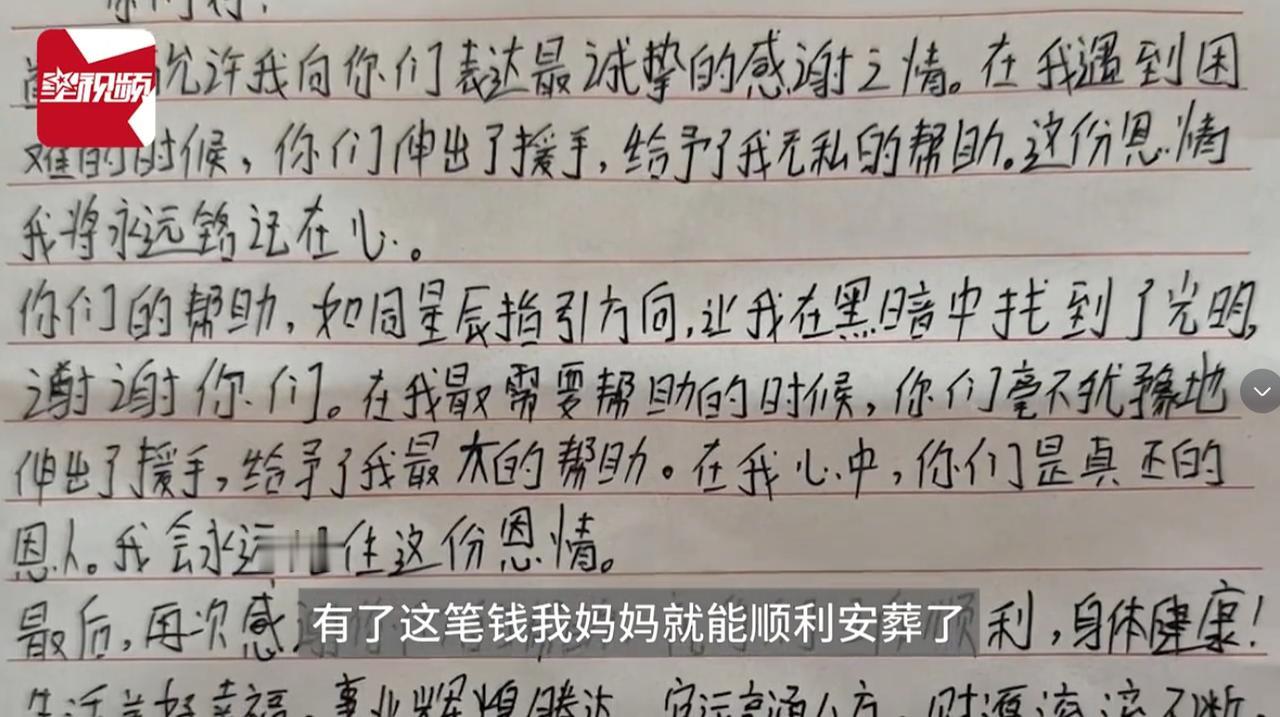 星视频
允许我向你们表达最诚挚的感谢之情。在我遇到困
难的时候，你们伸出了援手，给予了我无私的帮助。这份恩情
我将永远铭记在心。
你们的帮助，如同星辰指引方向，让我在黑暗中找到了光明，
谢谢你们。在我最需要帮助的时候，你们毫不犹豫地
伸出了援手，给予了我最大的帮助。在我心中，你们是真正的
恩人。我会永远 住这份恩情。
最后，再次感 利，身体健康！
有了这笔钱我妈妈就能顺利安葬了
生活美好幸福，事业辉煌腾达，官运亨通八方，财源滚滚不断。